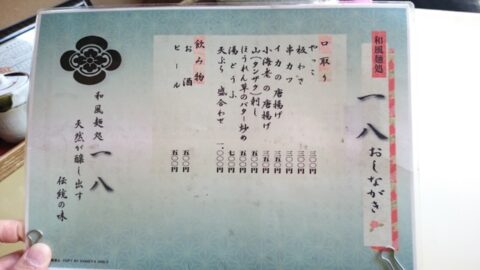 和風麺処
一八 おしながき
口取り
やっこ 三〇〇円
板わさ 三〇〇円
串カツ 三〇〇円
イカの唐揚げ 三五〇円
小海老の唐揚げ 三五〇円
山(シンザク)刺し 五五〇円
ほうれん草のバター炒め 五五〇円
湯どうふ 七〇〇円
天ぷら 盛合わせ 一、〇〇〇円
飲み物
お酒 五〇〇円
ビール 五〇〇円
和風麺処 一八
天然が醸し出す
伝統の味